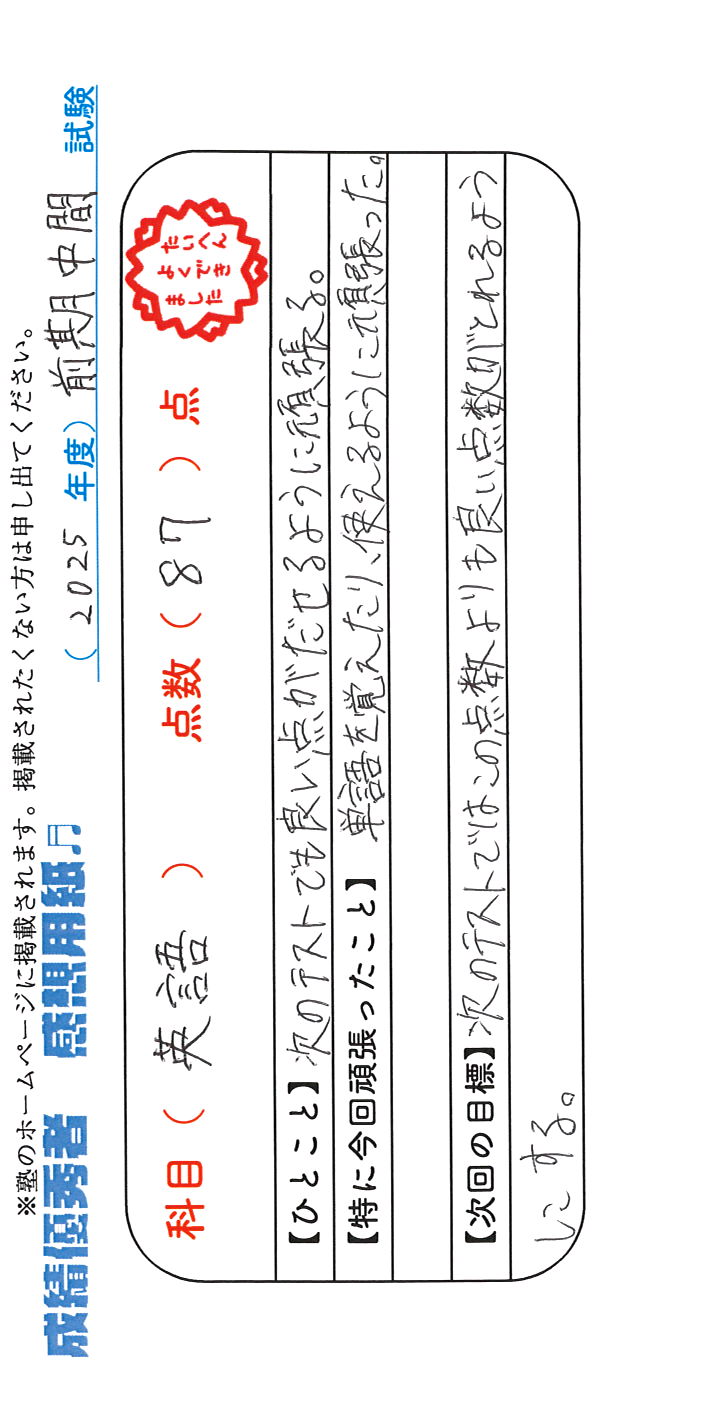 ※塾のホームページに掲載されます。掲載されたくない方は申し出てください。
成績優秀者 感想用紙♬ (2025 年度) 前期中間 試験
科目 ( 英語 ) 点数 ( 87 ) 点
たいへん
よくでき
ました
【ひとこと】次のテストでも良い点がだせるように頑張る。
【特に今回頑張ったこと】単語を覚えたり、使えるように頑張った。
【次回の目標】次のテストではこの点数よりも良い点数がとれるよう
にする。